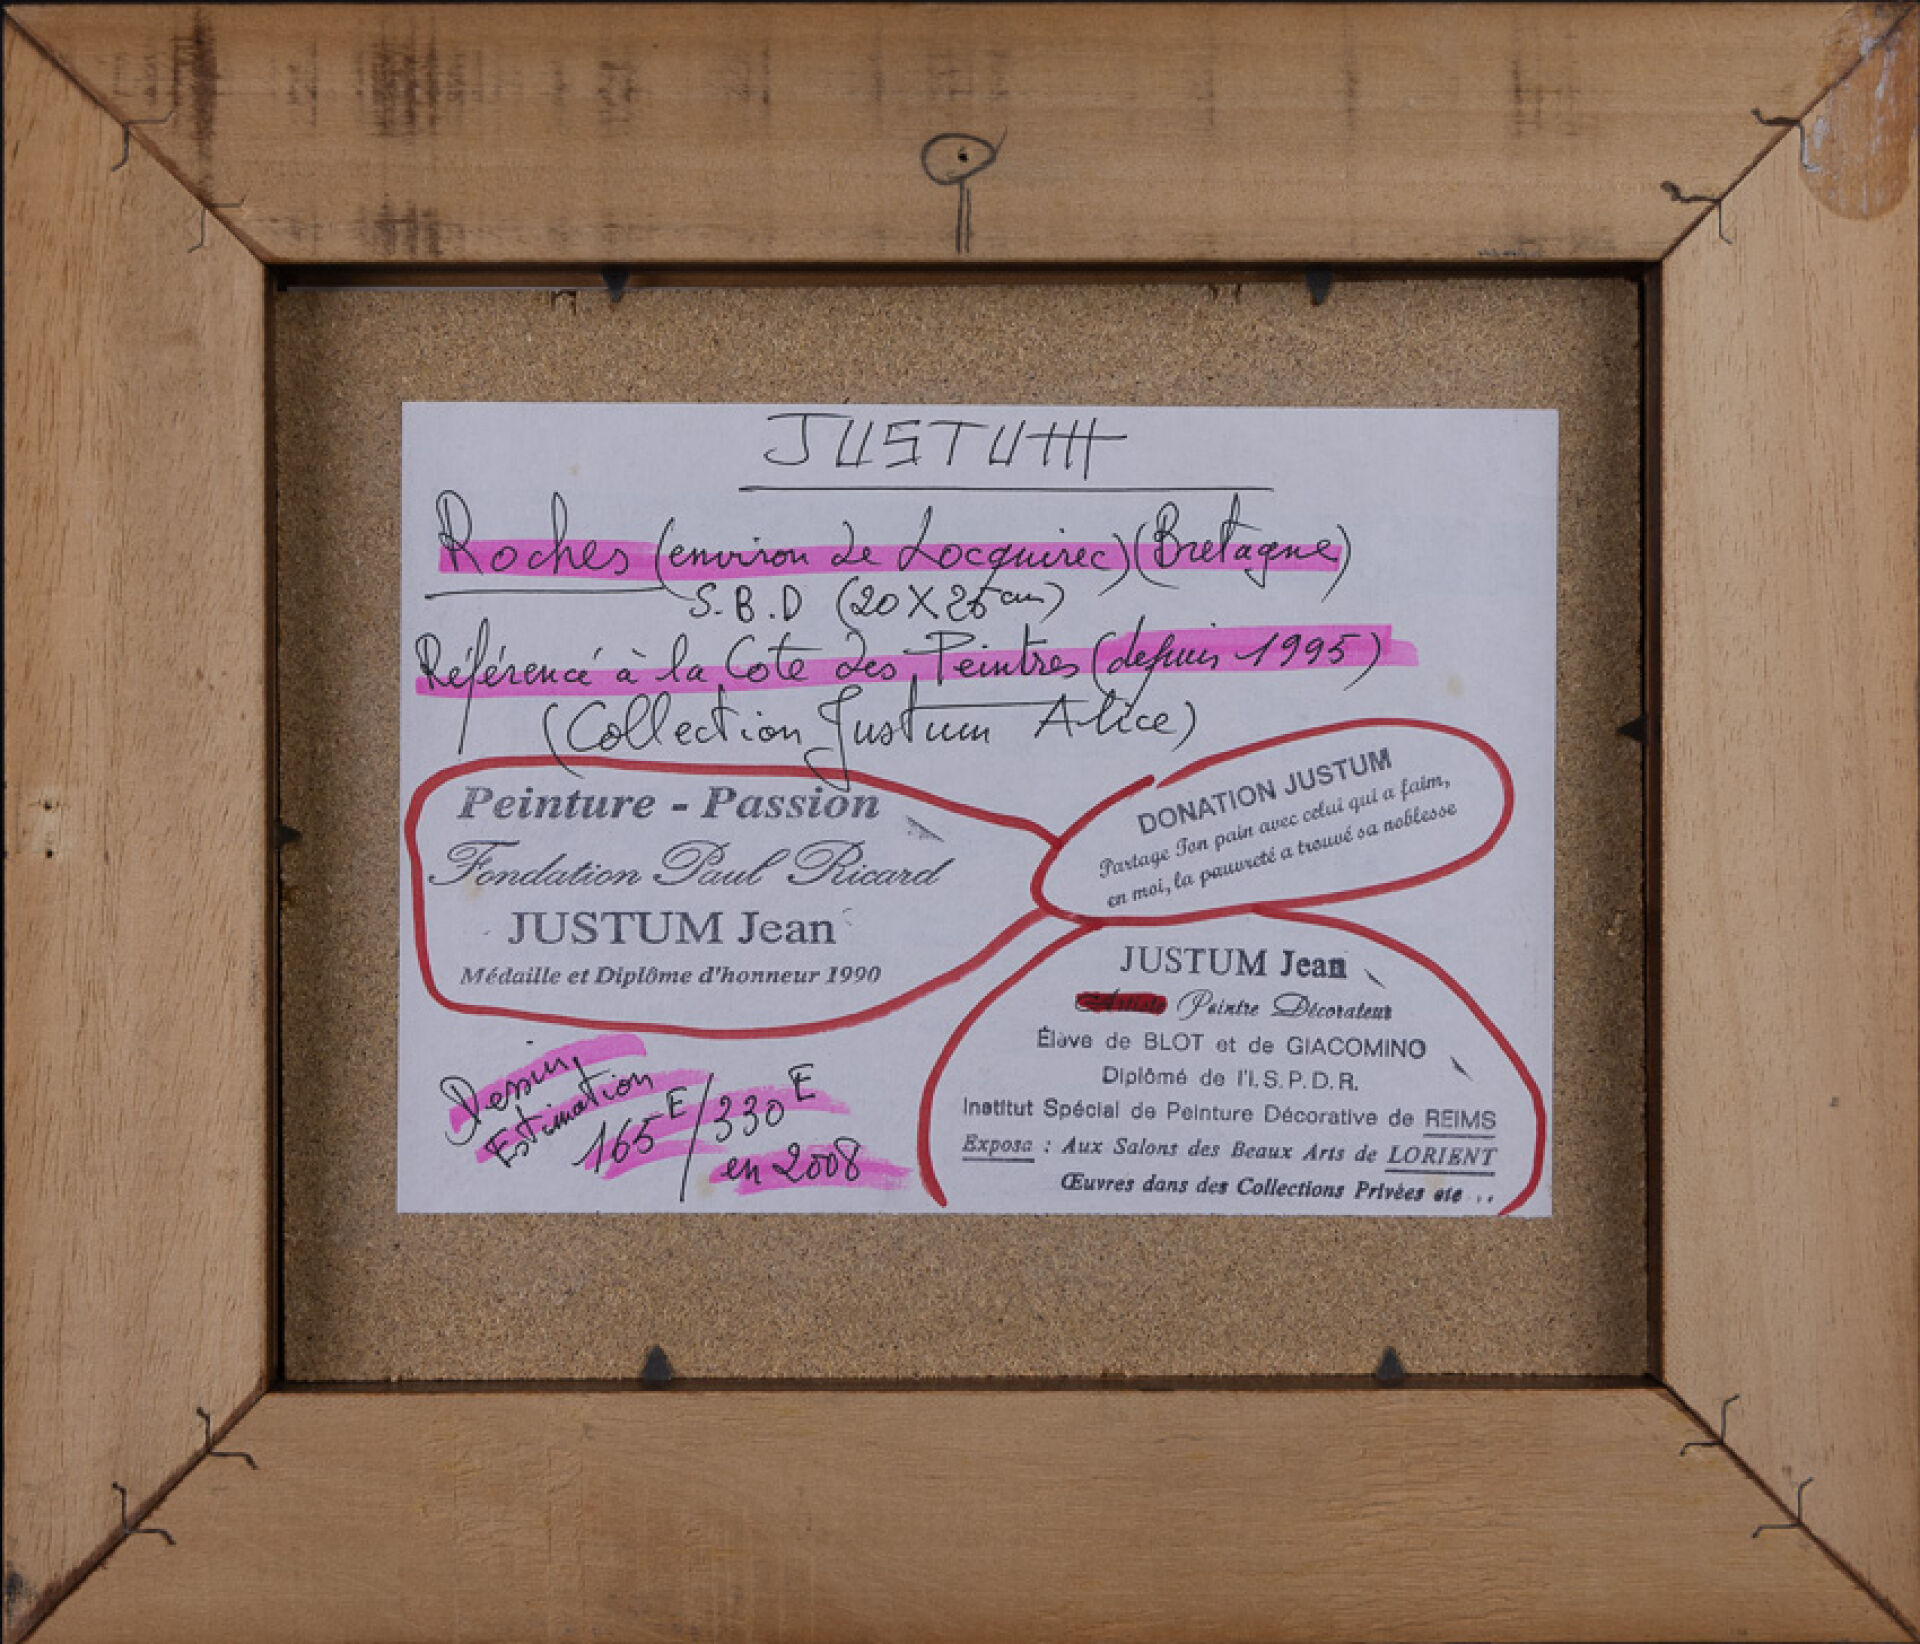 JUSTUM
Roches (environ de Locquirec) (Bretagne)
S.B.D (20 X 26 cm)
Référencé à la Cote des Peintres (depuis 1995)
(Collection Justum Alice)
Peinture - Passion
Fondation Paul Ricard
JUSTUM Jean
Médaille et Diplôme d'honneur 1990
DONATION JUSTUM
Partage Ton pain avec celui qui a faim,
en moi, la pauvreté a trouvé sa noblesse
JUSTUM Jean
Artiste Peintre Décorateur
Élève de BLOT et de GIACOMINO
Diplômé de l'I.S.P.D.R.
Institut Spécial de Peinture Décorative de REIMS
Exposa : Aux Salons des Beaux Arts de LORIENT
Œuvres dans des Collections Privées etc ...
Dessin,
Estimation
165 E / 330 E
en 2008